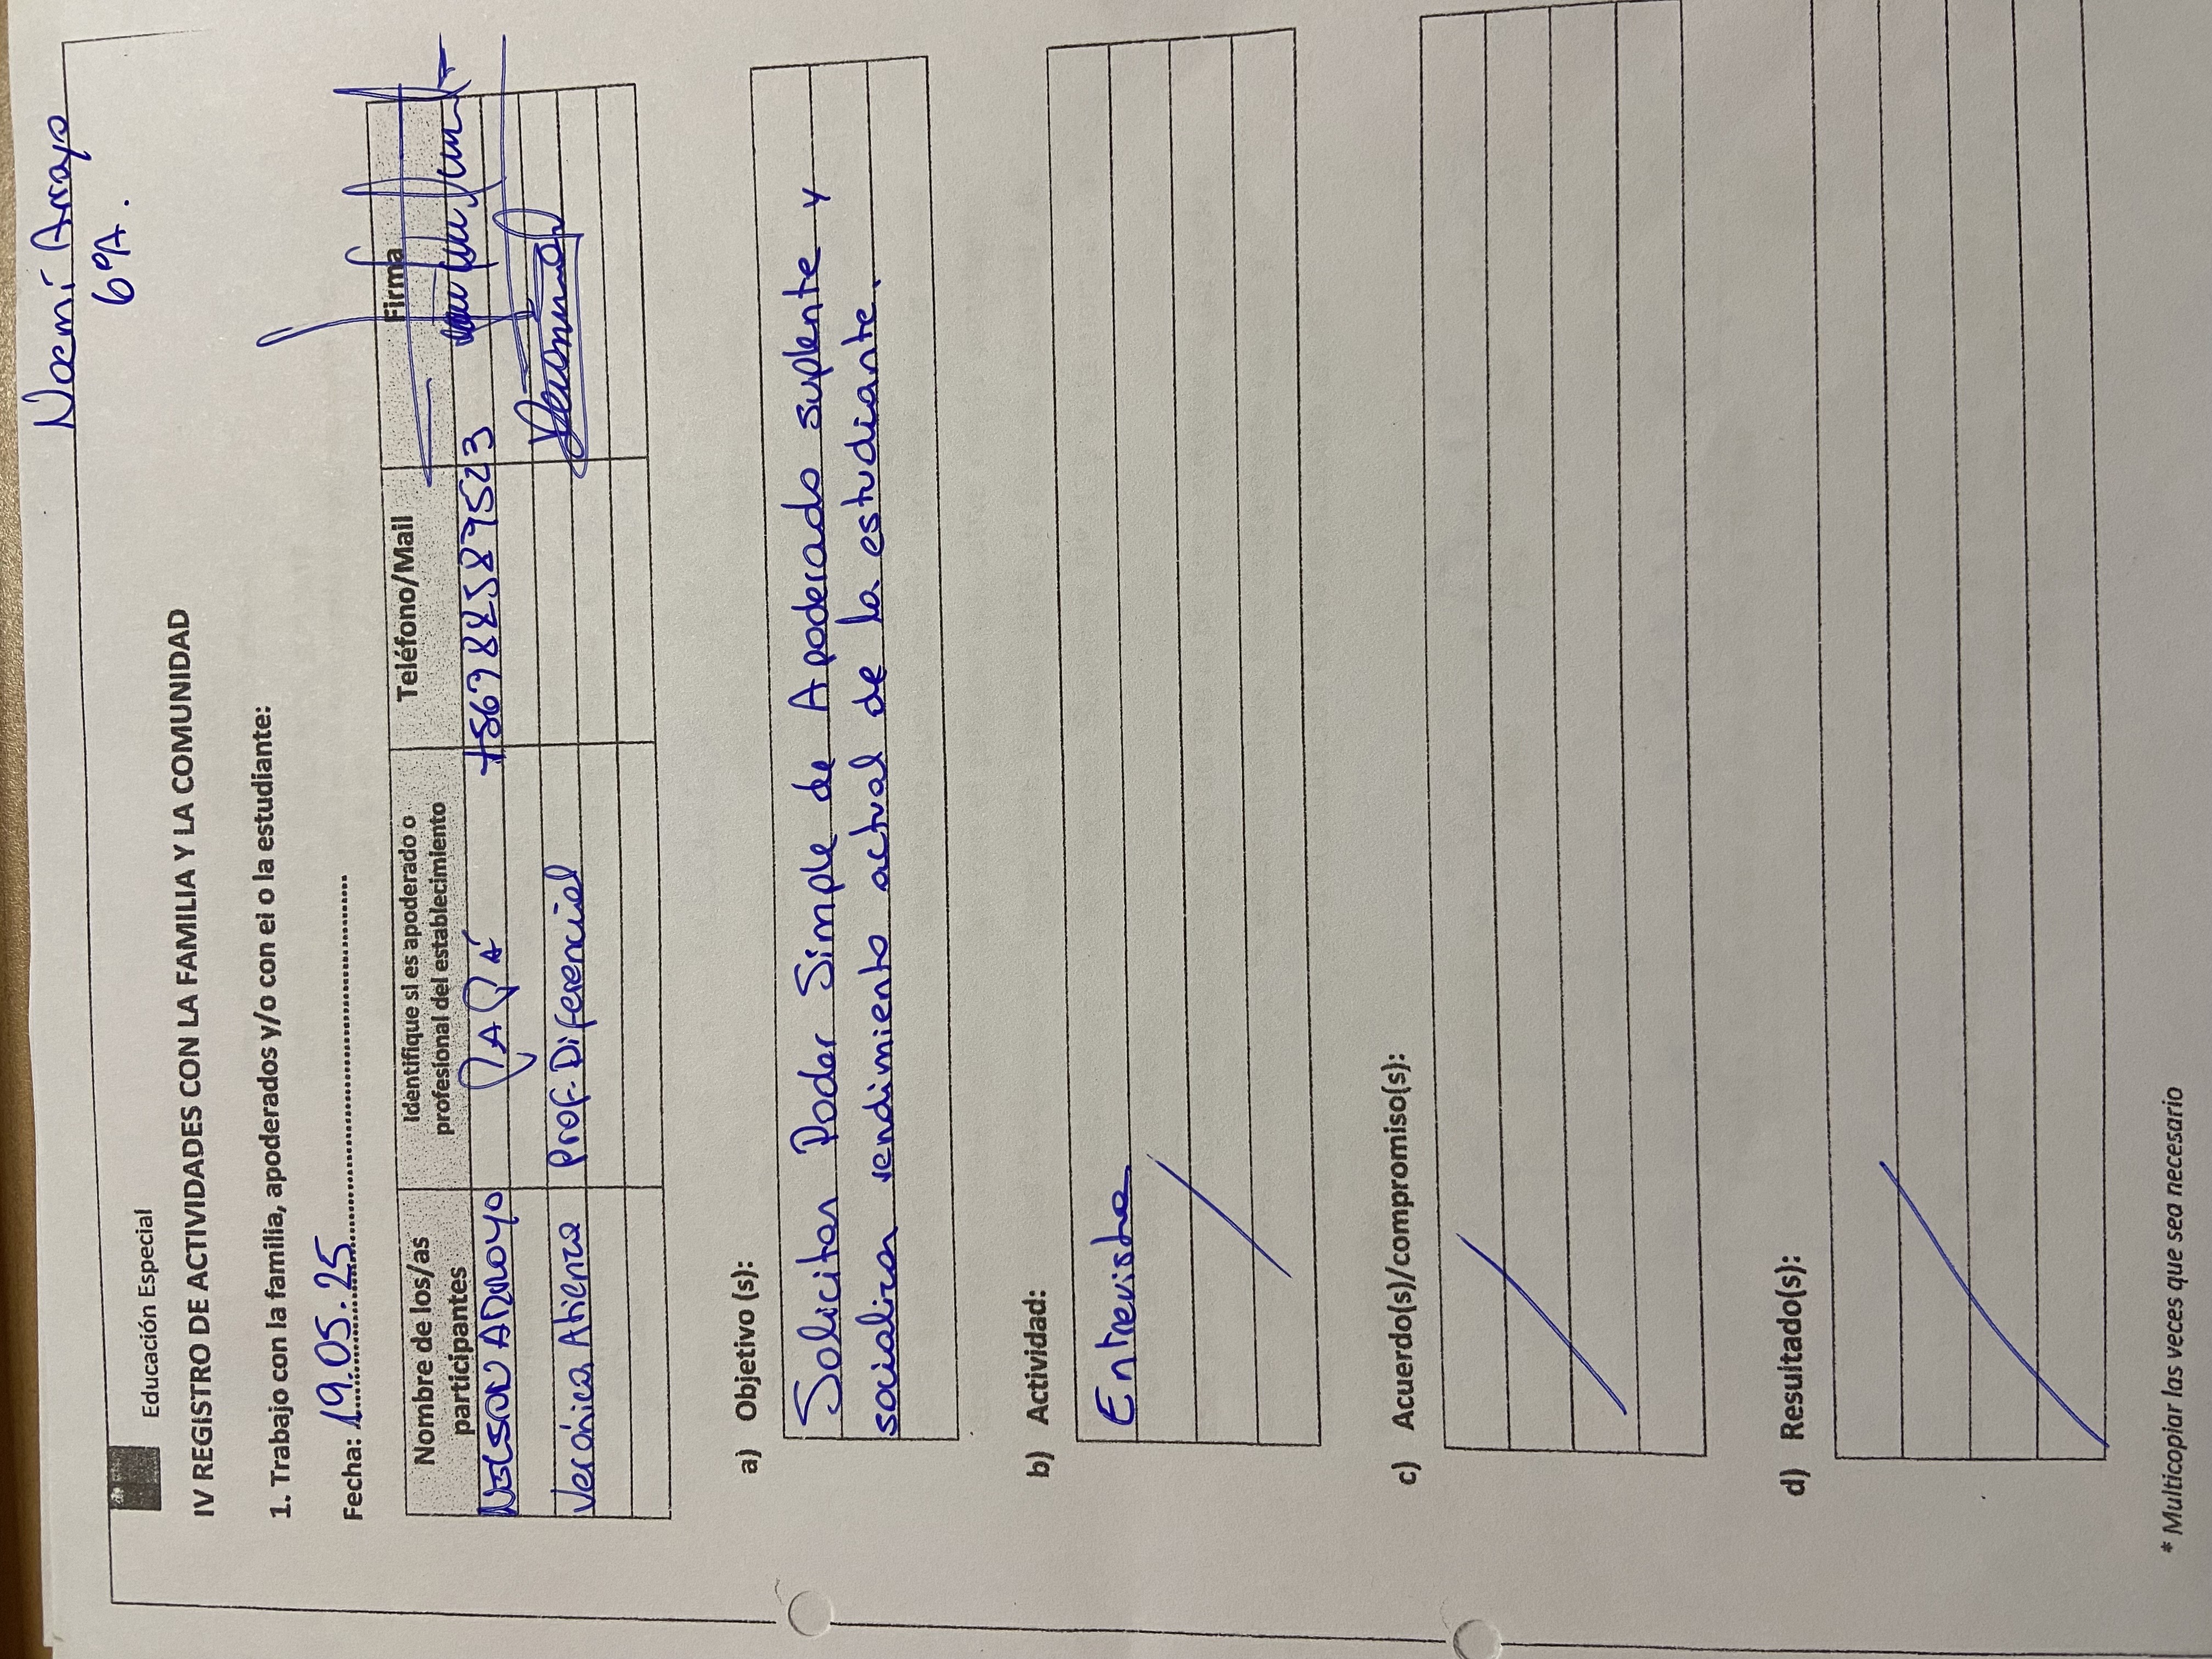 Noemí Arroyo
6ºA.
Educación Especial
IV REGISTRO DE ACTIVIDADES CON LA FAMILIA Y LA COMUNIDAD
1. Trabajo con la familia, apoderados y/o con el o la estudiante:
Fecha: 19.05.25
Nombre de los/as participantes Identifique si es apoderado o profesional del establecimiento Teléfono/Mail Firma
NELSON ARROYO PAPÁ +5698825879523
Verónica Atienza Prof. Diferencial
a) Objetivo (s):
Solicitar Poder Simple de Apoderado suplente y
socializar rendimiento actual de la estudiante.
b) Actividad:
Entrevista
c) Acuerdo(s)/compromiso(s):
d) Resultado(s):
* Multicopiar las veces que sea necesario